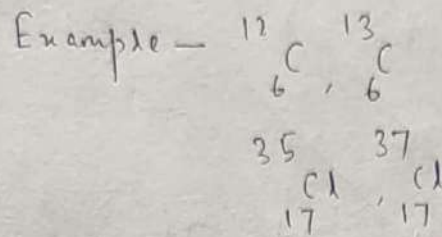 Example - ¹²₆C, ¹³₆C
³⁵₁₇Cl, ³⁷₁₇Cl